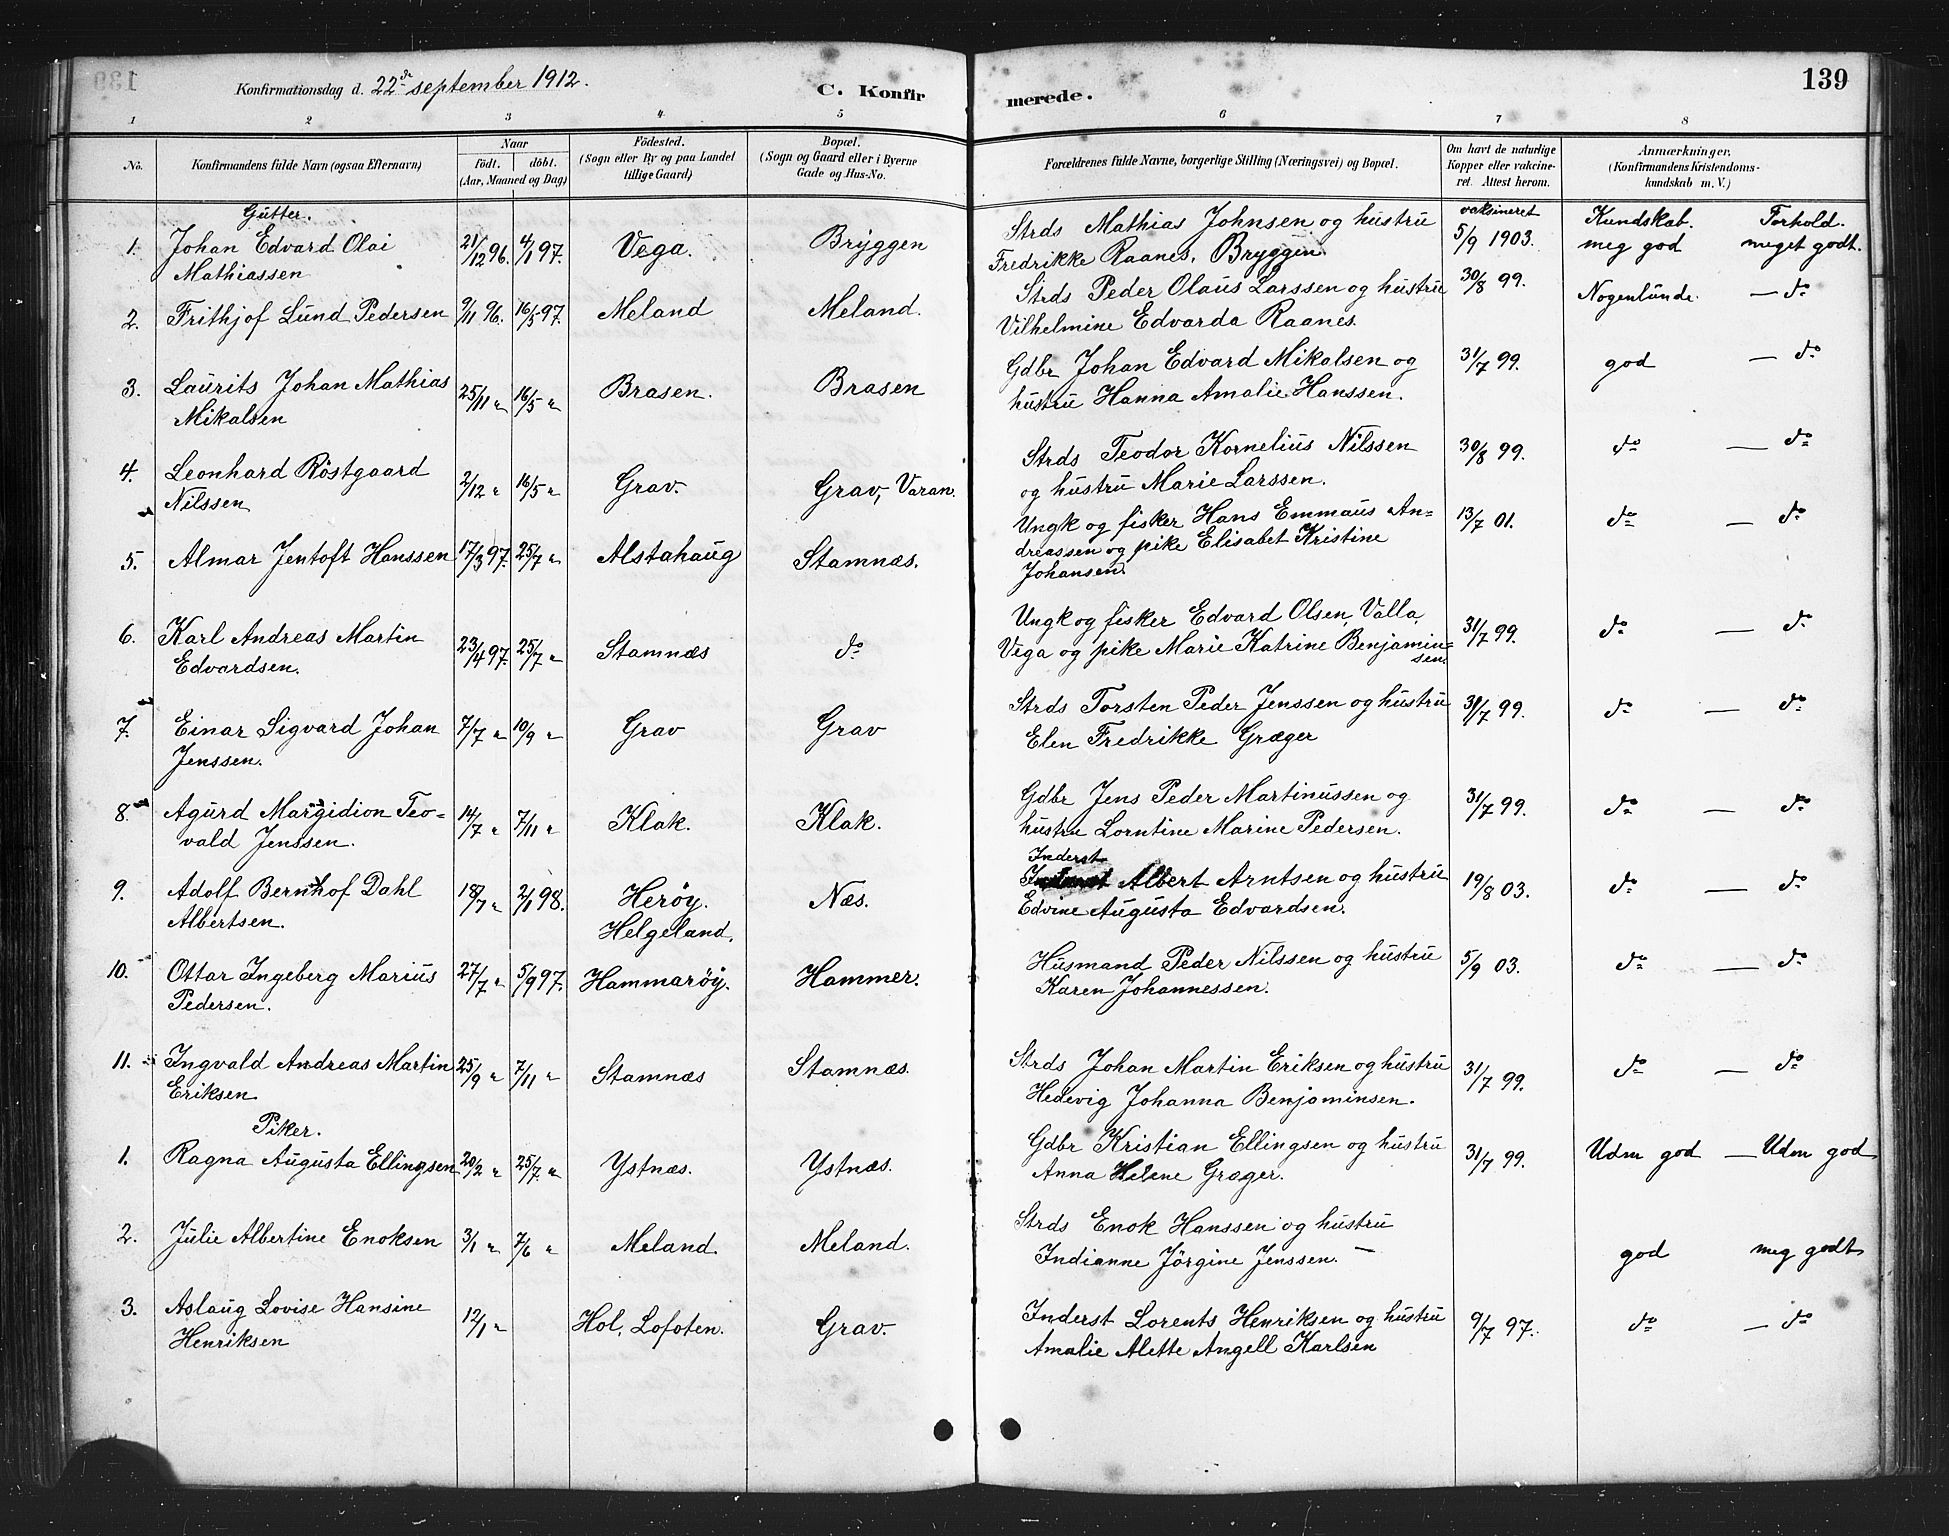 Konfirmationsdag d. 22de september 1912.
C. Konfirmerede.
139
1 2 3 4 5 6 7 8
No.
Konfirmandens fulde Navn (ogsaa Efternavn)
Naar
födt. döbt.
(Aar, Maaned og Dag)
Födested.
(Sogn eller By og paa Landet
tillige Gaard)
Bopæl.
(Sogn og Gaard eller i Byerne
Gade og Hus-No.
Forældrenes fulde Navne, borgerlige Stilling (Næringsvei) og Bopæl.
Om havt de naturlige
Kopper eller vakcine-
ret. Attest herom.
Anmærkninger,
(Konfirmandens Kristendoms-
kundskab m. V.)
Gutter.
vaksineret
Kundskab. Forhold.
1. Johan Edvard Olai
Mathiassen
21/12 96. 4/1 97. Vega. Bryggen
Strds Mathias Johnsen og hustru
Fredrikke Raanes, Bryggen.
5/9 1903. meg god meget godt.
2. Frithjof Lund Pedersen
9/11 96. 16/5 97. Meland Meland.
Strds Peder Olaus Larssen og hustru
Vilhelmine Edvarda Raanes.
30/8 99. Nogenlunde. — do
3. Laurits Johan Mathias
Mikalsen
25/11 " 16/5 " Brasen. Brasen
Gdbr Johan Edvard Mikalsen og
hustru Hanna Amalie Hanssen.
31/7 99. god — do
4. Leonhard Röstgaard
Nilssen
2/12 " 16/5 " Grav. Grav, Varan.
Strds Teodor Kornelius Nilssen
og hustru Marie Larssen.
30/8 99. do — do
5. Almar Jentoft Hanssen
17/3 97. 25/7 " Alstahaug Stamnæs.
Ungk og fisker Hans Emmaus An=
dreassen og pike Elisabet Kristine
Johansen.
13/7 01. do — do
6. Karl Andreas Martin
Edvardsen.
23/4 97. 25/7 " Stamnæs do
Ungk og fisker Edvard Olsen, Valla,
Vega og pike Marie Katrine Benjamin=
sen.
31/7 99. do — do
7. Einar Sigvard Johan
Jenssen.
7/7 " 10/9 " Grav Grav
Strds Torsten Peder Jenssen og hustru
Elen Fredrikke Græger
31/7 99. do — do
8. Agurd Margidion Teo=
vald Jenssen.
14/7 " 7/11 " Klak. Klak.
Gdbr Jens Peder Martinussen og
hustru Lorntine Marine Pedersen.
31/7 99. do — do
9. Adolf Bernhof Dahl
Albertsen.
18/7 " 2/1 98. Heröy. Næs.
Helgeland.
Inderst
Albert Arntsen og hustru
Edvine Augusta Edvardsen.
19/8 03. do — do
10. Ottar Ingeberg Marius
Pedersen.
27/7 " 5/9 97. Hammaröy. Hammer.
Husmand Peder Nilssen og hustru
Karen Johannessen.
5/9 03. do — do
11. Ingvald Andreas Martin
Eriksen
25/9 " 7/11 " Stamnæs Stamnæs.
Strds Johan Martin Eriksen og hustru
Hedevig Johanna Benjaminsen.
31/7 99. do — do
Piker.
1. Ragna Augusta Ellingsen
20/2 " 25/7 " Ystnæs. Ystnæs.
Gdbr Kristian Ellingsen og hustru
Anna Helene Græger.
31/7 99. Udm god — Udm god
2. Julie Albertine Enoksen
3/1 " 7/6 " Meland Meland.
Strds Enok Hanssen og hustru
Indianne Jörgine Jenssen. —
god meg godt
3. Aslaug Lovise Hansine
Henriksen
12/1 " Hol, Lofoten. Grav.
Inderst Lorents Henriksen og hustru
Amalie Alette Angell Karlsen
9/7 97. do — do